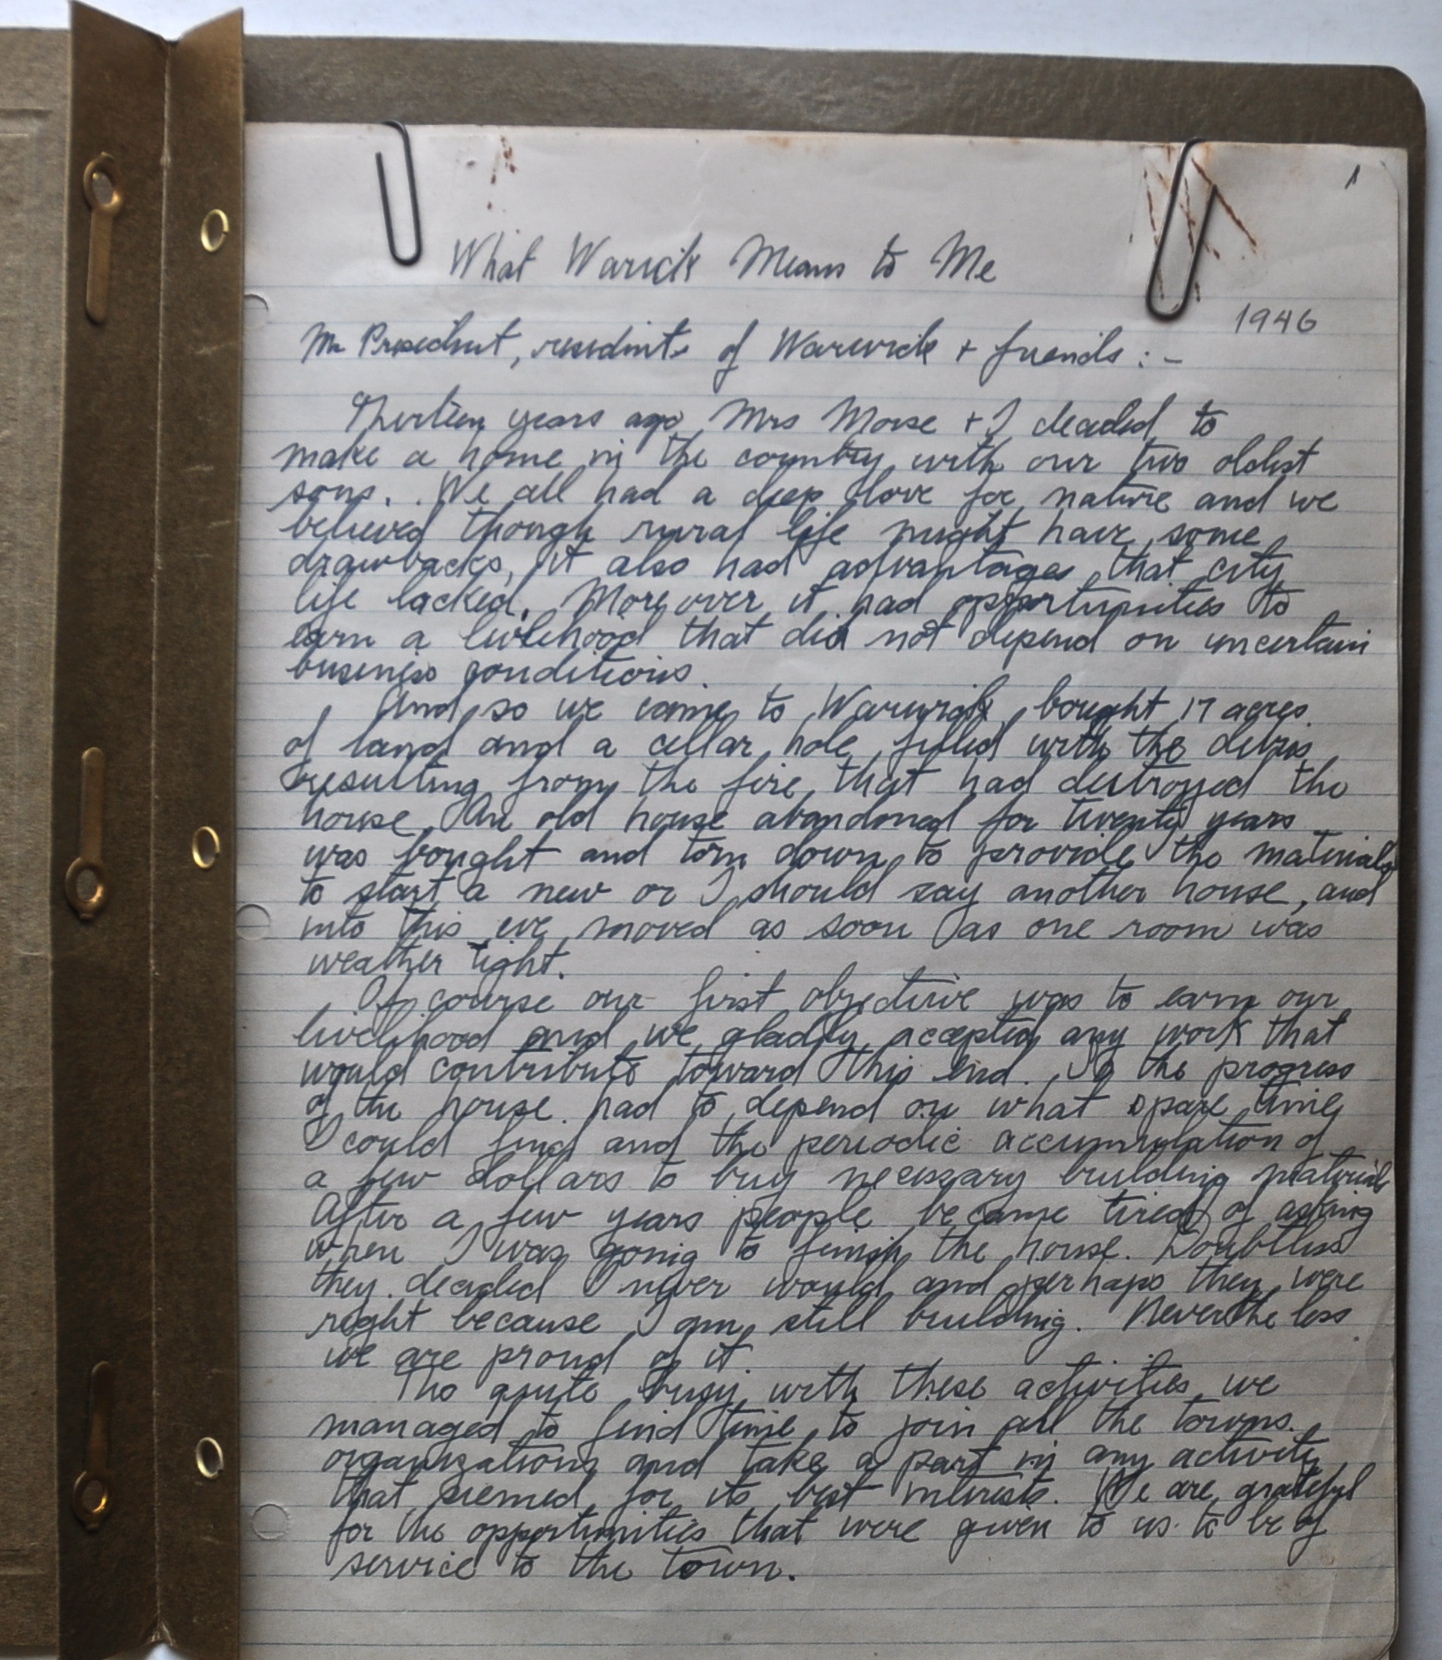 1
What Warick Means to Me
1946
Mr President, residents of Warwick + friends : -
Thirteen years ago Mrs Morse + I decided to
make a home in the country with our two oldest
sons. We all had a deep love for nature and we
believed though rural life might have some
drawbacks, it also had advantages that city
life lacked. Moreover it had opportunities to
earn a livlehood that did not depend on uncertain
business conditions.
And so we came to Warwick, bought 17 acres
of land and a cellar hole filled with the debris
resulting from the fire that had destroyed the
house. An old house abandoned for twenty years
was bought and torn down to provide the materials
to start a new or I should say another house, and
into this we moved as soon as one room was
weather tight.
Of course our first objective was to earn our
livelihood and we gladly accepted any work that
would contribute toward this end. So the progress
of the house had to depend on what spare time
I could find and the periodic accumulation of
a few dollars to buy necessary building material
After a few years people became tired of asking
when I was going to finish the house. Doubtless
they decided I never would and perhaps they were
right because I am still building. Never the less
we are proud of it.
Tho quite busy with these activities, we
managed to find time to join all the towns
organizations and take a part in any activity
that seemed for its best interests. We are grateful
for the opportunities that were given to us to be of
service to the town.